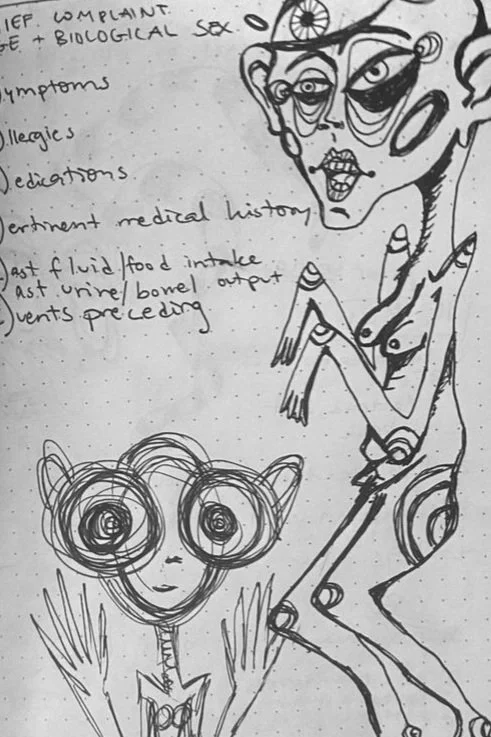 IEF COMPLAINT
GE + BIOLOGICAL SEX
ymptoms
llergies
edications
ertinent medical history
ast fluid/food intake
ast urine/bowel output
vents preceding